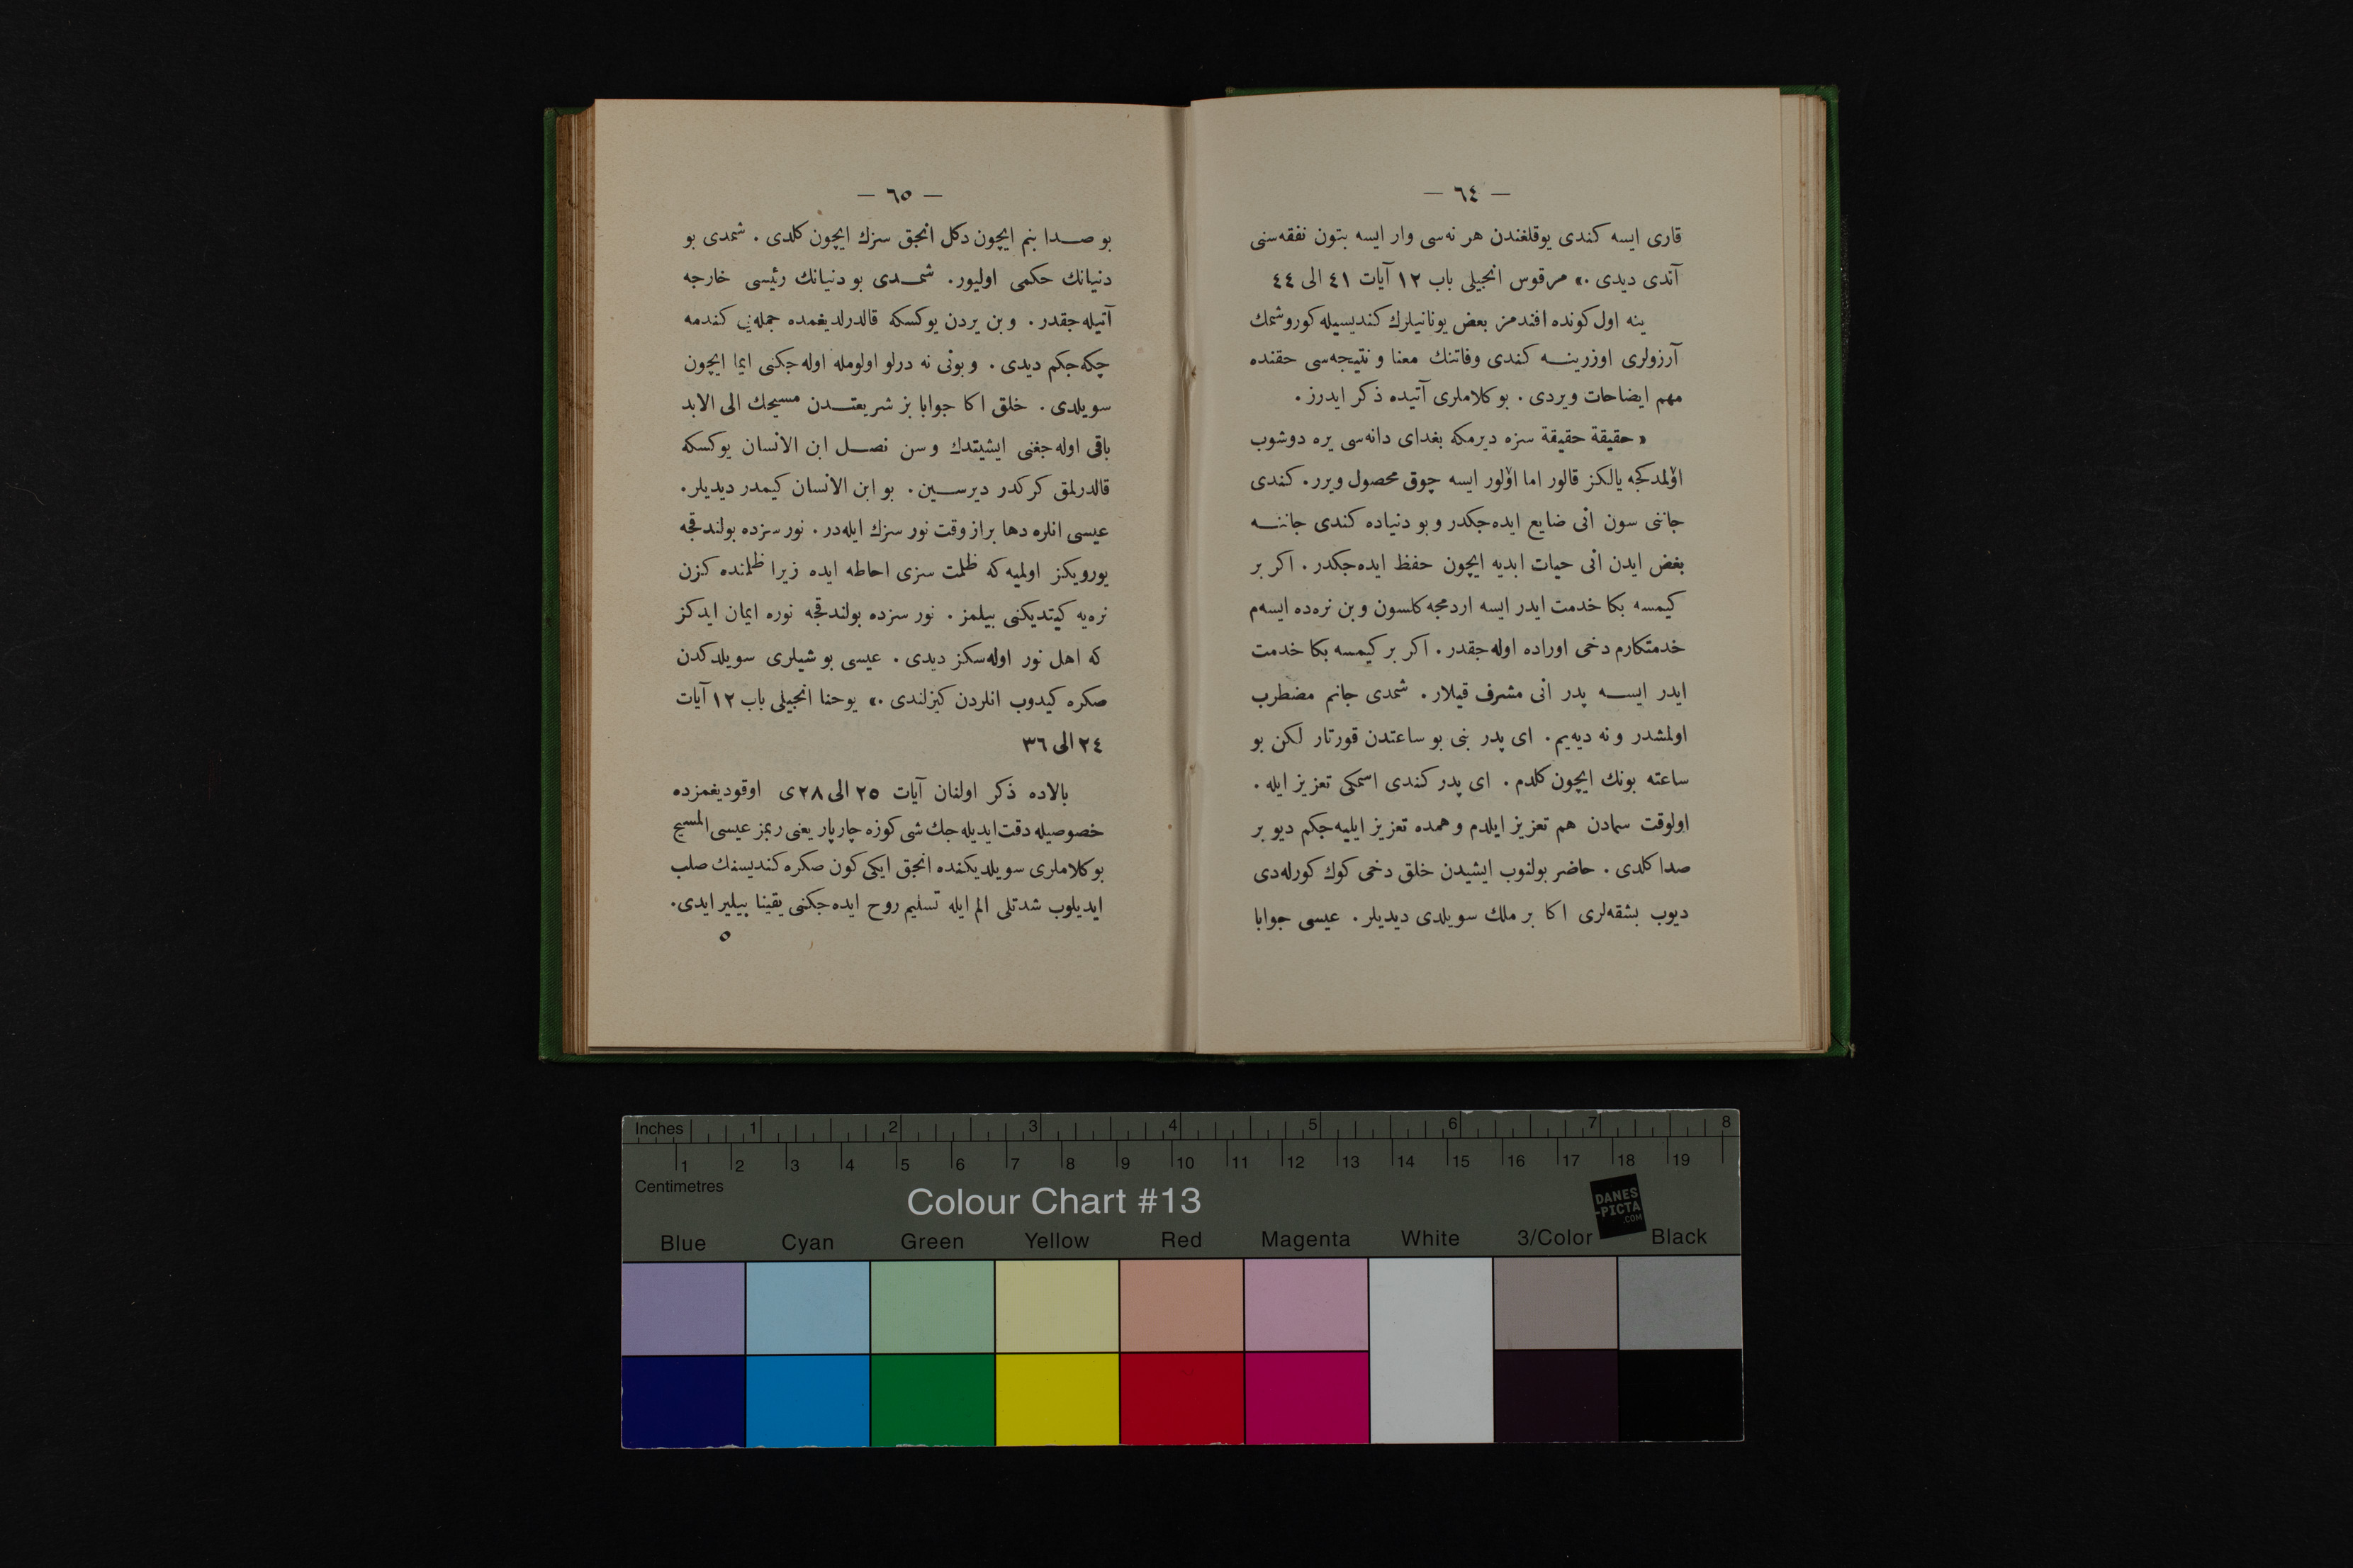 — ٦٤ —
قاری ایسه کندی یوقلغندن هر نه‌سی وار ایسه بتون نفقه‌سنی
آتدی دیدی .» مرقوس انجیلی باب ١٢ آیات ٤١ الی ٤٤
ینه اول کونده افندمز بعض یونانیلرك کندیسیله کوروشمك
آرزولری اوزرینه کندی وفاتنك معنا و نتیجه‌سی حقنده
مهم ایضاحات ویردی . بو کلاملری آتیده ذکر ایدرز .
« حقیقة حقیقة سزه دیرمکه بغدای دانه‌سی یره دوشوب
اۆلمدکجه یالکز قالور اما اۆلور ایسه چوق محصول ویرر . کندی
جاننی سون انی ضایع ایده‌جکدر و بو دنیاده کندی جاننه
بغض ایدن انی حیات ابدیه ایچون حفظ ایده‌جکدر . اکر بر
کیمسه بکا خدمت ایدر ایسه اردمجه کلسون و بن نره‌ده ایسه‌م
خدمتکارم دخی اوراده اوله‌جقدر . اکر بر کیمسه بکا خدمت
ایدر ایسه پدر انی مشرف قیلار . شمدی جانم مضطرب
اولمشدر و نه دیه‌یم . ای پدر بنی بو ساعتدن قورتار لکن بو
ساعته بونك ایچون کلدم . ای پدر کندی اسمکی تعزیز ایله .
اولوقت سمادن هم تعزیز ایلدم و همده تعزیز ایلیه‌جکم دیو بر
صدا کلدی . حاضر بولنوب ایشیدن خلق دخی کوك کورله‌دی
دیوب بشقه‌لری اکا بر ملك سویلدی دیدیلر . عیسی جوابا
— ٦٥ —
بو صدا بنم ایچون دکل انجق سزك ایچون کلدی . شمدی بو
دنیانك حکمی اولیور . شمدی بو دنیانك رئیسی خارجه
آتیله‌جقدر . و بن یردن یوکسکه قالدرلدیغمده جمله‌یی کندمه
چکه‌جکم دیدی . و بونی نه درلو اولومله اوله‌جکنی ایما ایچون
سویلدی . خلق اکا جوابا بز شریعتدن مسیحك الی الابد
باقی اوله‌جغنی ایشیتدك و سن نصل ابن الانسان یوکسکه
قالدرلمق کرکدر دیرسین . بو ابن الانسان کیمدر دیدیلر .
عیسی انلره دها براز وقت نور سزك ایله‌در . نور سزده بولندقجه
یورویکز اولمیه که ظلمت سزی احاطه ایده زیرا ظلمتده کزن
نره‌یه کیتدیکنی بیلمز . نور سزده بولندقجه نوره ایمان ایدکز
که اهل نور اوله‌سکز دیدی . عیسی بو شیلری سویلدکدن
صکره کیدوب انلردن کیزلندی .» یوحنا انجیلی باب ١٢ آیات
٢٤ الی ٣٦
بالاده ذکر اولنان آیات ٢٥ الی ٢٨ ی اوقودیغمزده
خصوصیله دقت ایدیله‌جك شی کوزه چارپار یعنی ربمز عیسی المسیح
بو کلاملری سویلدیکنده انجق ایکی کون صکره کندیسنك صلب
ایدیلوب شدتلی الم ایله تسلیم روح ایده‌جکنی یقینا بیلیر ایدی .
٥
Inches 1 2 3 4 5 6 7 8
1 2 3 4 5 6 7 8 9 10 11 12 13 14 15 16 17 18 19
Centimetres
Colour Chart #13
DANES
-PICTA
.COM
Blue Cyan Green Yellow Red Magenta White 3/Color Black